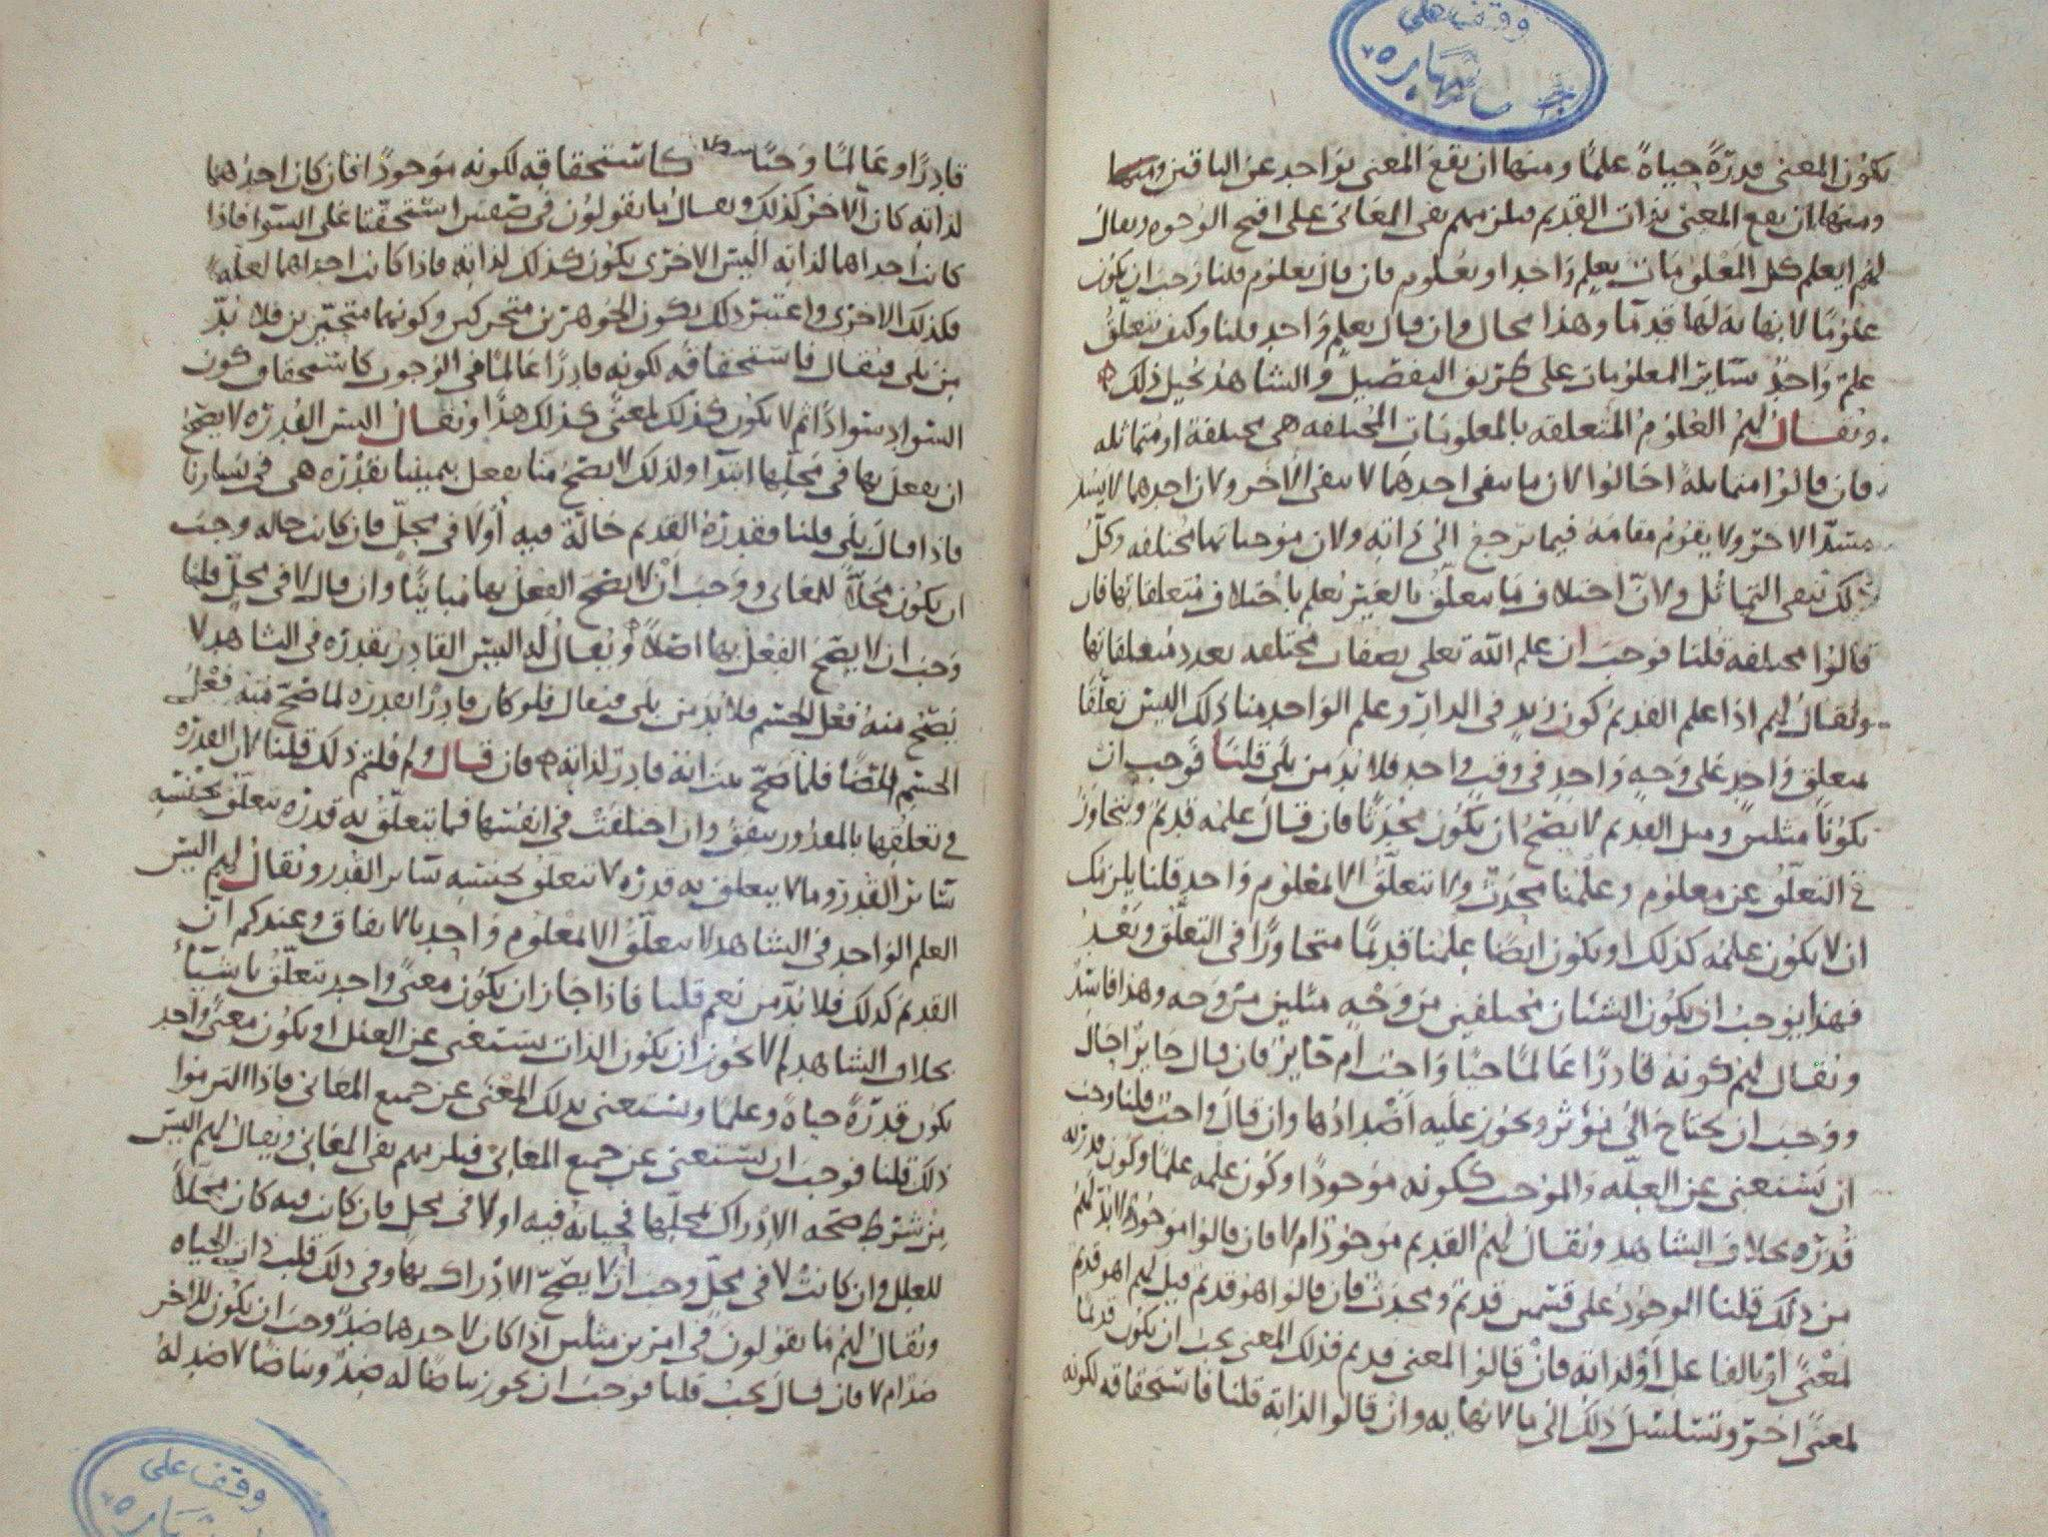 وقف على
يكون المعنى قدرة حياة علما ومنها ان يقع المعنى بواحد عن الباقين ومنها
ومنها ان يقع المعنى بذات القديم فيلزمهم نفى المعانى على اقبح الوجوه ويقال
لهم ايعلم كل المعلومات بعلم واحد او بعلوم فان قال بعلوم قلنا وجب ان يكون
علوما لا نهاية لها قدما وهذا محال وان قال بعلم واحد قلنا وكيف يتعلق
علم واحد بسائر المعلومات على طريق التفصيل والشاهد يحيل ذلك
ويقال لهم العلوم المتعلقه بالمعلومات المختلفه هى مختلفة او متماثله
فان قالوا متماثلة احالوا لان ما ينفى احدهما لا ينفى الاخر ولان احدهما لا يسد
مسد الاخر ولا يقوم مقامه فيما يرجع الى ذاته ولان موجباتهما مختلفه وكل
ذلك ينفى التماثل ولان اختلاف ما يتعلق بالغير يعلم باختلاف متعلقاتها فان
قالوا مختلفه قلنا فوجب ان علم الله تعلى بصفات مختلفه بعدد متعلقاتها
ويقال لهم اذا علم القديم كون زيد فى الدار وعلم الواحد منا ذلك اليس تعلقا
بمتعلق واحد على وجه واحد فى وقت واحد فلا بد من بلى قلنا فوجب ان
يكونا مثلين ومثل القديم لا يصح ان يكون محدثا فان قال علمه قديم ويتجاوز
فى التعلق عن معلوم وعلمنا محدث ولا يتعلق الا بمعلوم واحد قلنا يلزمك
ان لا يكون علمه كذلك او يكون ايضا علمنا قديما متجاوزا فى التعلق وبعد
فهذا يوجب ان يكون الشيئان مختلفين من وجه مثلين من وجه وهذا فاسد
ويقال لهم كونه قادرا عالما حيا واجب ام جايز فان قال جايز احال
ووجب ان يحتاج الى مؤثر ويجوز عليه اضدادها وان قال واجب قلنا وجب
ان يستغنى عن العله والموجب ككونه موجودا وكون علمه علما وكون قدرته
قدره بخلاف الشاهد ويقال لهم القديم موجود ام لا فان قالوا موجود لا بد لهم
من ذلك قلنا الموجود على قسمين قديم ومحدث فان قالوا هو قديم قيل لهم اهو قديم
لمعنى او بالفاعل او لذاته فان قالوا لمعنى قديم فذلك المعنى يجب ان يكون قديما
لمعنى اخر ويتسلسل ذلك الى ما لا نهايه به وان قالوا لذاته قلنا فاستحقاقه لكونه
قادرا وعالما وحيا كاستحقاقه لكونه موجودا فان كان احدهما
لذاته كان الاخر كذلك ويقال ما يقولون فى صفتين استحقتا على السوا فاذا
كانت احداهما لذاته اليس الاخرى يكون كذلك لذاته فاذا كانت احداهما لعله
فكذلك الاخرى واعتبر ذلك بكون الجوهرين متحركين وكونهما متحيزين فلا بد
من بلى فيقال فاستحقاقه لكونه قادرا عالما فى الوجوب كاستحقاق كون
السواد سوادا ثم لا يكون كذلك لمعنى كذلك هذا ويقال اليس القدره لا يصح
ان يفعل بها فى محلها ابتدا ولذلك لا يصح منا نفعل بيميننا بقدره هى فى يسارنا
فاذا قال بلى قلنا فقدرة القديم حالة فيه او لا فى محل فان كانت حاله وجب
ان يكون محلا للمعانى ووجب ان لا يصح الفعل بها مباينا وان قال لا فى محل قلنا
وجب ان لا يصح الفعل بها اصلا ويقال له اليس القادر بقدره فى الشاهد لا
يصح منه فعل الجسم فلا بد من بلى فيقال فلو كان قادرا بقدره لما صح منه فعل
الجسم ايضا فلما صح ثبت انه قادر لذاته فان قال ولم قلتم ذلك قلنا لان القدره
فى تعلقها بالمقدور يتفق وان اختلفت فى انفسها فما يتعلق به قدره يتعلق بجنسه
سائر القدر وما لا يتعلق به قدره لا تتعلق بجنسه سائر القدر ويقال لهم اليس
العلم الواحد فى الشاهد لا يتعلق الا بمعلوم واحد بالاتفاق وعندكم ان
القديم كذلك فلا بد من نعم قلنا فاذا جاز ان يكون معنى واحد يتعلق باشياء
بخلاف الشاهد لم لا يجوز ان يكون الذات يستغنى عن العلل او يكون معنى واحد
يكون قدرة حياة وعلما ويستغنى بذلك المعنى عن جميع المعانى فاذا التزموا
ذلك قلنا فوجب ان يستغنى عن جميع المعانى فيلزمهم نفى المعانى ويقال لهم اليس
من شرط صحه الادراك بمحلها فحياته فيه او لا فى محل فان كانت فيه كان محلا
للعلل وان كانت لا فى محل وجب ان لا يصح الادراك بها وفى ذلك الحياه
ويقال لهم ما يقولون فى امرين مثلين اذا كان لاحدهما ضد وجب ان يكون للاخر
ضد ام لا فان قال يجب قلنا فوجب ان يجوز بياضا له ضد وبياضا لا ضد له
وقف على